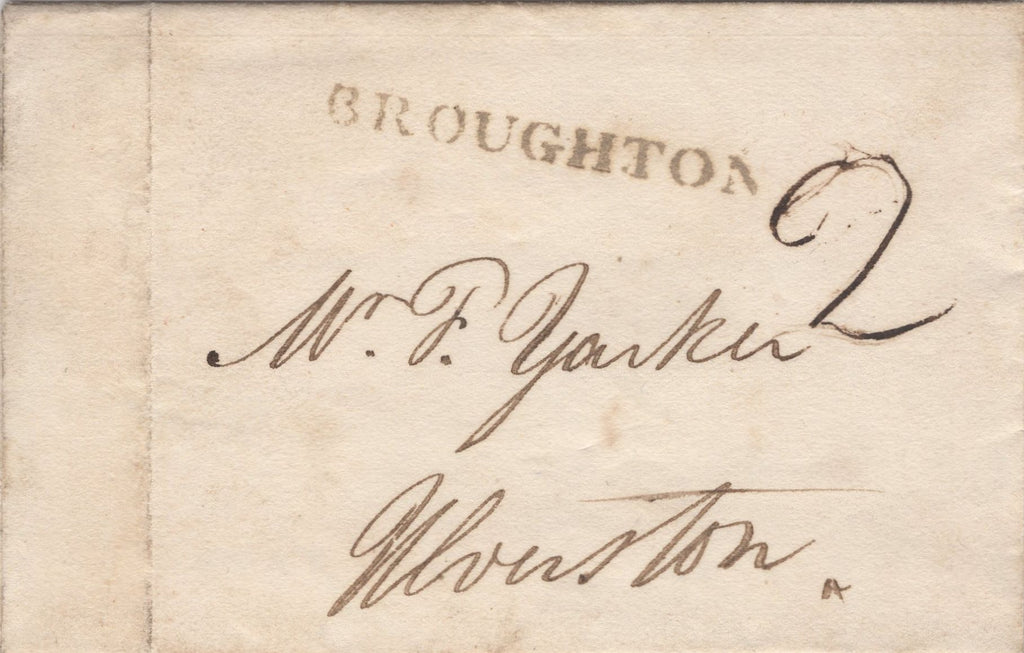 BROUGHTON
2
Mr. F. Yarker
Ulverston.